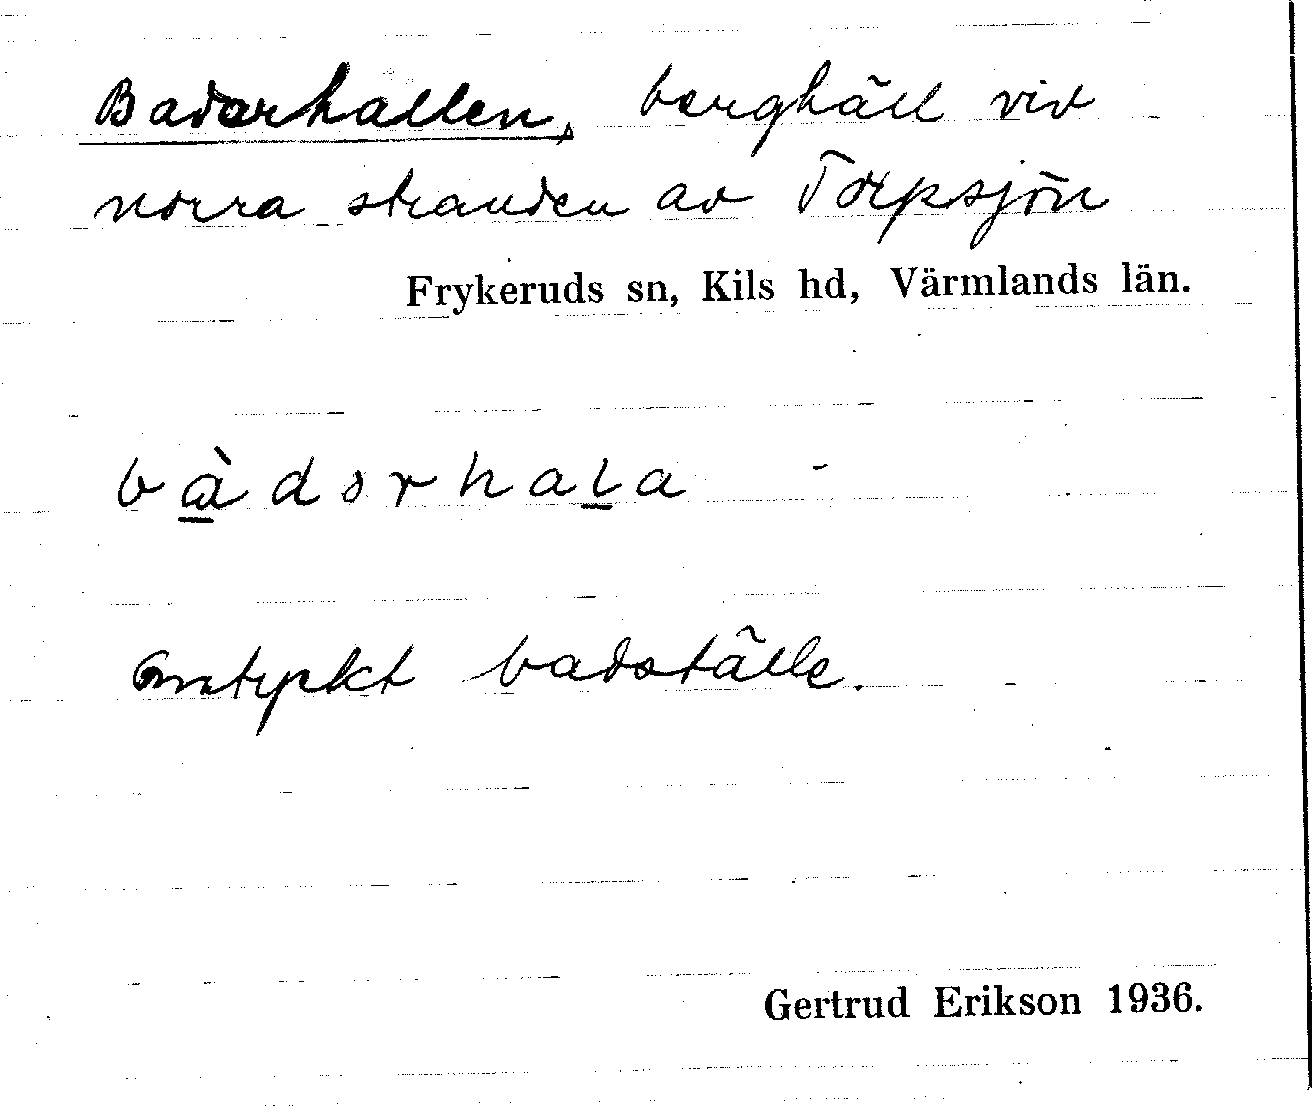 Badarhallen, berghäll vid
norra stranden av Torpsjön
Frykeruds sn, Kils hd, Värmlands län.
bàdorhala
Omtyckt badställe.
Gertrud Erikson 1936.